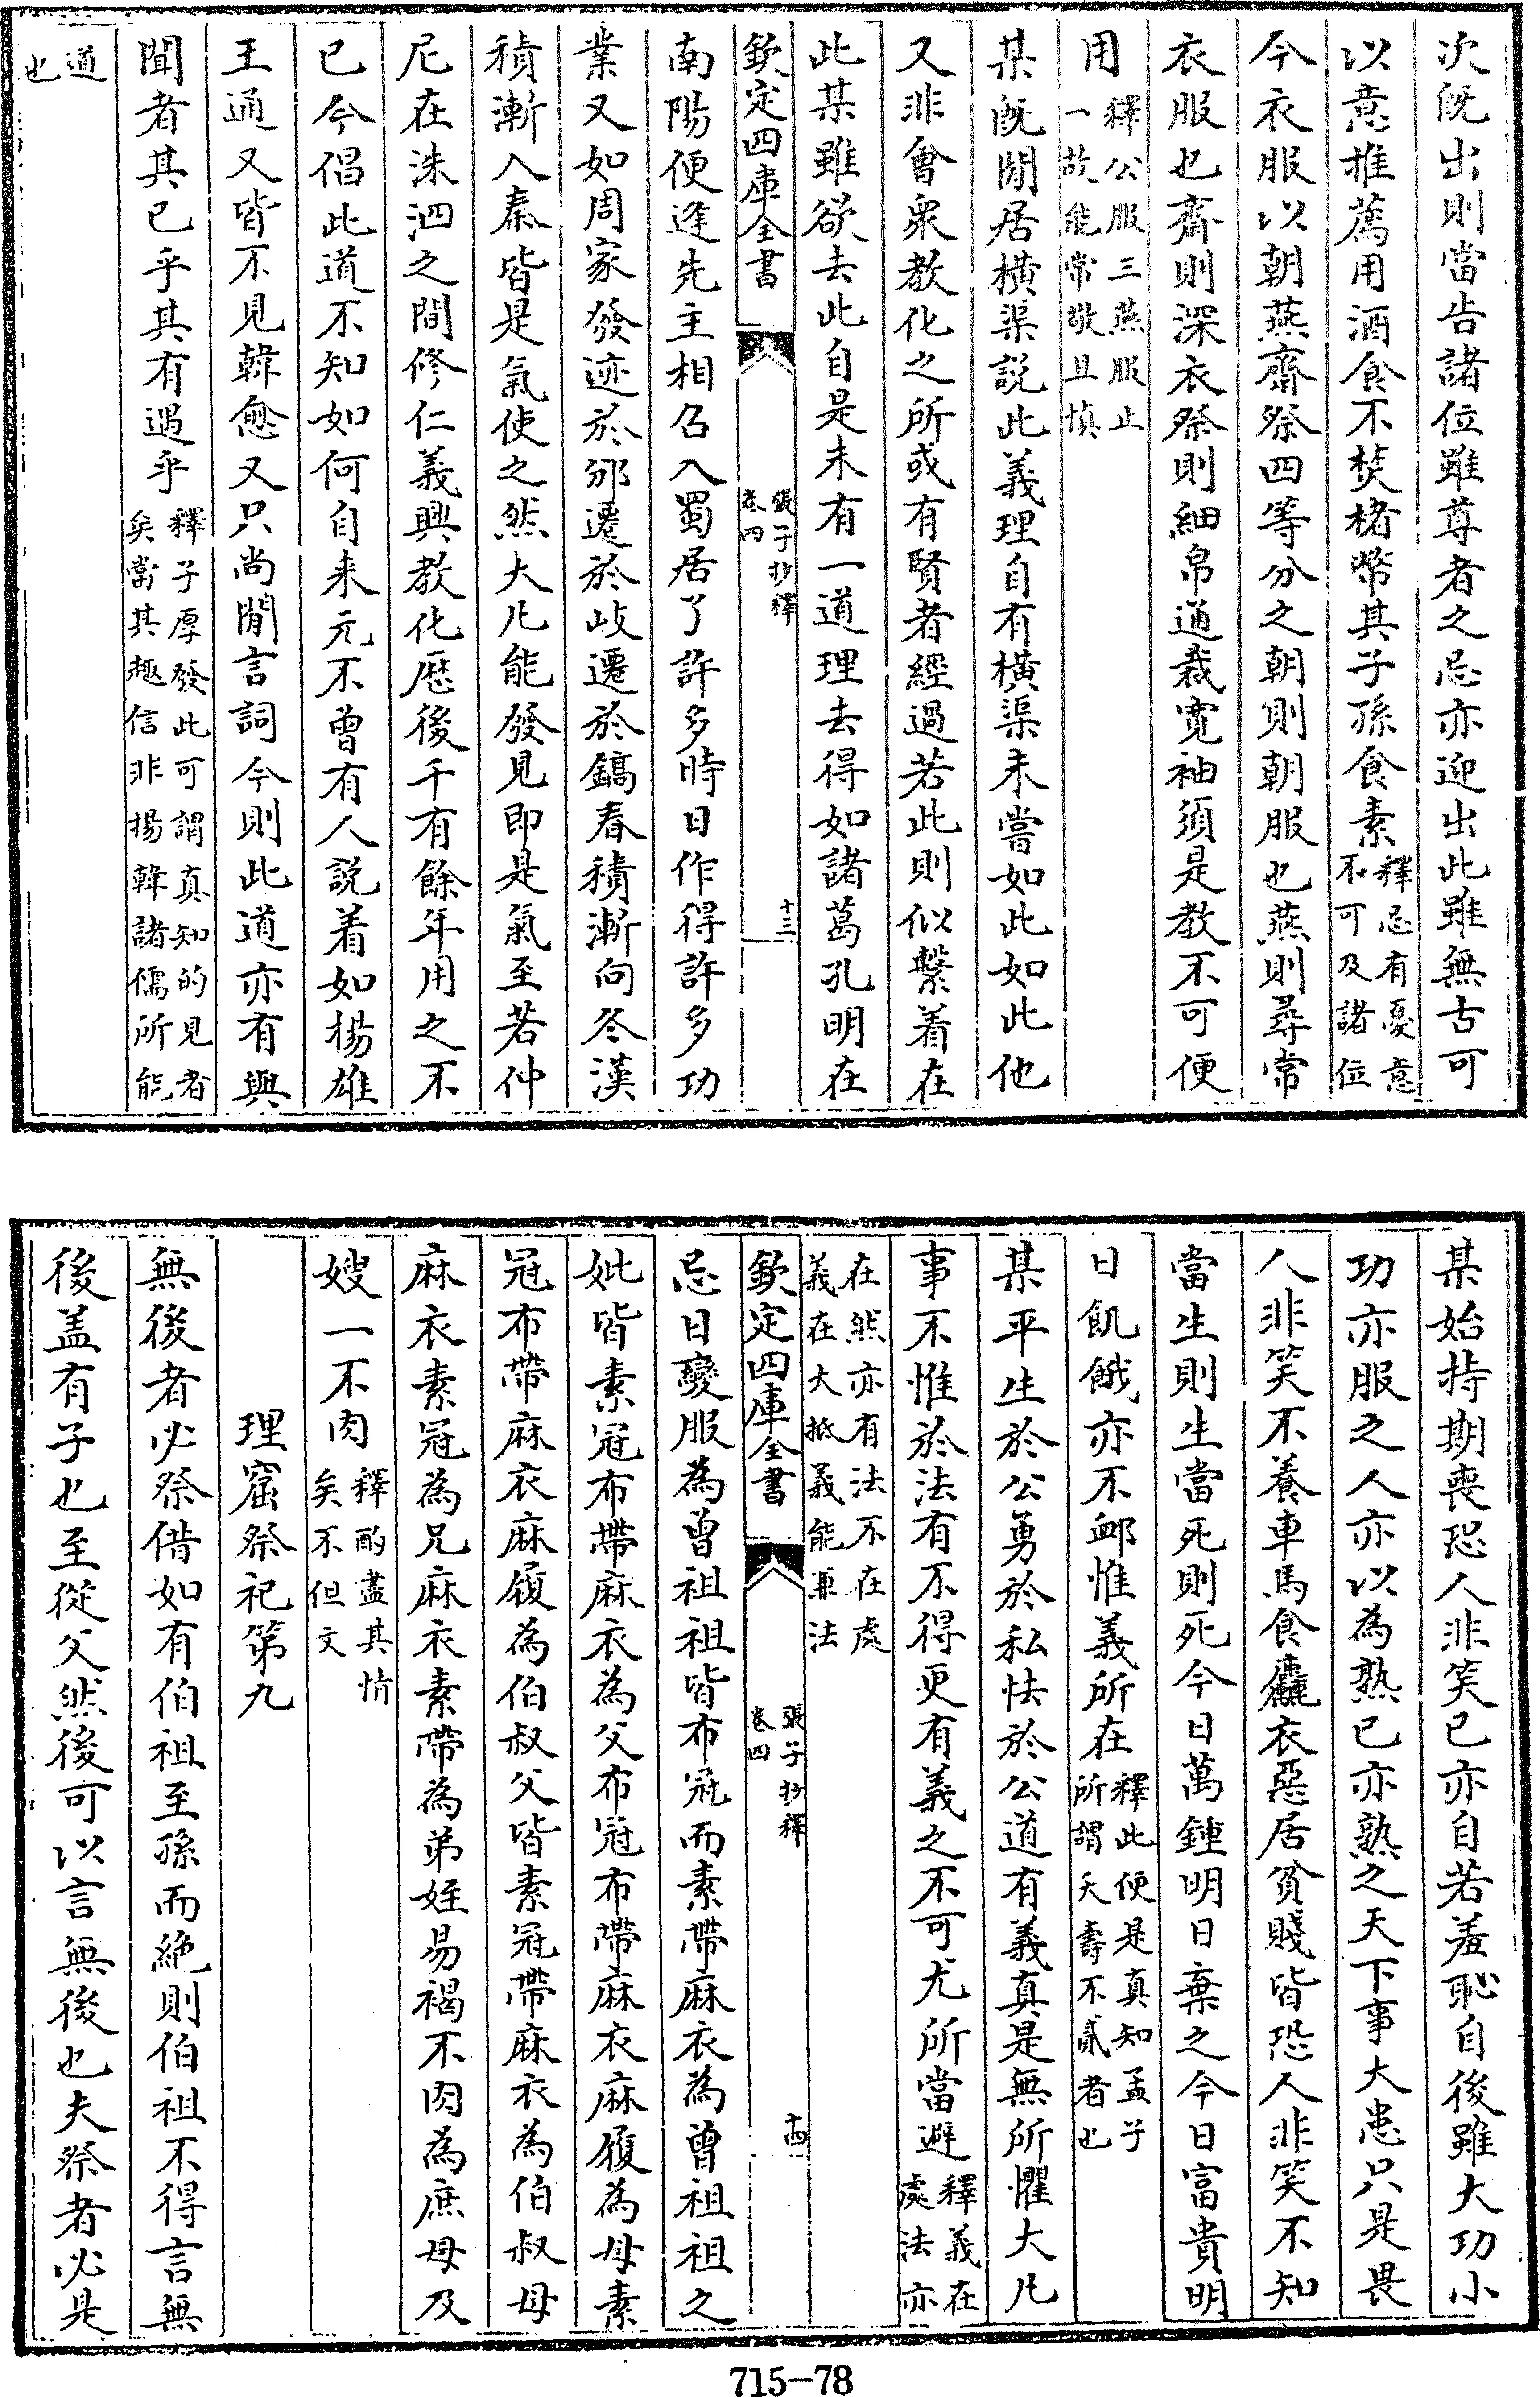 次既出則當告諸位雖尊者之忌亦迎出此雖無古可
以意推薦用酒食不焚楮幣其子孫食素釋忌有憂意不可及諸位
今衣服以朝燕齋祭四等分之朝則朝服也燕則尋常
衣服也齋則深衣祭則紬帛通裁寛袖須是教不可便
用釋公服三燕服止一故能常敬且慎
某既閒居横渠説此義理自有横渠未嘗如此如此他
又非會衆教化之所或有賢者經過若此則似繫着在
此某雖欲去此自是未有一道理去得如諸葛孔明在
欽定四庫全書
張子抄釋
卷四
十三
南陽便逢先主相召入蜀居了許多時日作得許多功
業又如周家發迹於邠遷於岐遷於鎬春積漸向冬漢
積漸入秦皆是氣使之然大凡能發見即是氣至若仲
尼在洙泗之間修仁義興教化厯後千有餘年用之不
已今倡此道不知如何自来元不曾有人説着如揚雄
王通又皆不見韓愈又只尚閒言詞今則此道亦有與
聞者其已乎其有遇乎釋子厚發此可謂真知的見者矣當其趣信非揚韓諸儒所能
道也
某始持期喪恐人非笑已亦自若羞恥自後雖大功小
功亦服之人亦以為熟已亦熟之天下事大患只是畏
人非笑不養車馬食麤衣惡居貧賤皆恐人非笑不知
當生則生當死則死今日萬鍾明日棄之今日富貴明
日飢餓亦不衈惟義所在釋此便是真知孟子所謂夭壽不貳者也
某平生於公勇於私怯於公道有義真是無所懼大凡
事不惟於法有不得更有義之不可尤所當避釋義在處法亦
在然亦有法不在處義在大抵義能兼法
欽定四庫全書
張子抄釋
卷四
十四
忌日變服為曾祖祖皆布冠而素帶麻衣為曾祖祖之
妣皆素冠布帶麻衣為父布冠布帶麻衣麻履為母素
冠布帶麻衣麻履為伯叔父皆素冠帶麻衣為伯叔母
麻衣素冠為兄麻衣素帶為弟姪易褐不肉為庶母及
嫂一不肉釋酌盡其情矣不但文
理窟祭祀第九
無後者必祭借如有伯祖至孫而絶則伯祖不得言無
後盖有子也至從父然後可以言無後也夫祭者必是
715-78